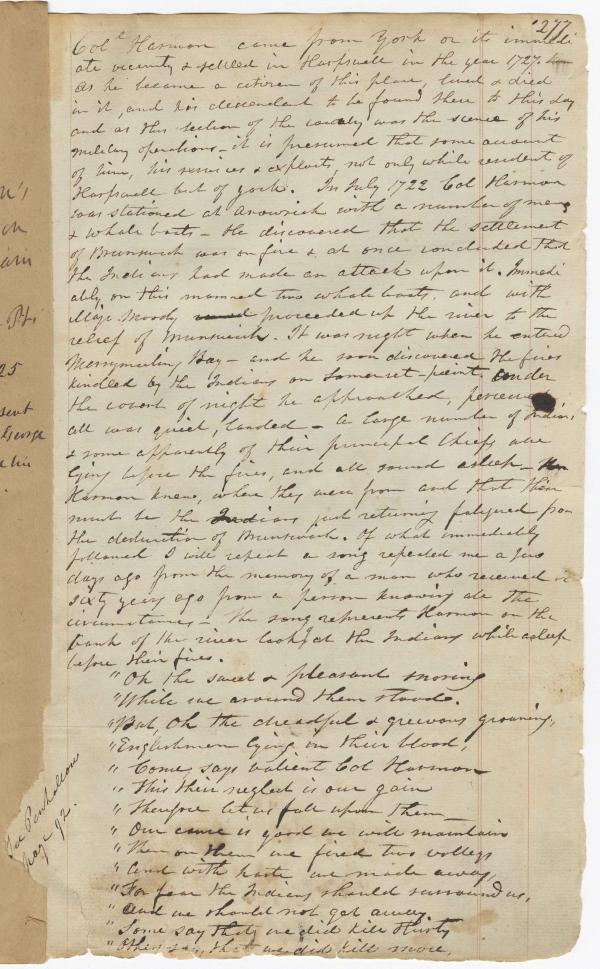 277
Col. Harmon came from York or its immedi
ate vicinity & settled in Harpswell in the year 1727.
As he became a citizen of this place, lived & died
in it, and his descendant to be found there to this day
and as this section of the country was the scene of his
military operations - it is presumed that some account
of him, his services & exploits, not only while resident of
Harpswell but of york. In July 1722 Col Harmon
was stationed at Arrowick with a number of men
& whale boats - He discovered that the settlement
of Brunswick was on fire & at once concluded that
the Indians had made an attack upon it. Immedi
ately on this manned two whale boats, and with
Majr. Moody proceeded up the river to the
relief of Brunswick. It was night when he entered
Merrymeeting Bay - and he soon discovered the fires
kindled by the Indians on Somerset-point. Under
the covert of night he approached, perceived
all was quiet, landed - A large number of Indians
& some apparently of their principal Chiefs were
lying before the fires, and all sound asleep -
Harmon knew, where they were from and that these
must be the Indians just returning fatigued from
the destruction of Brunswick. Of what immediately
followed I will repeat a song repeated me a few
days ago from the memory of a man who received it
sixty years ago from a person knowing all the
circumstances - The song represents Harmon on the
bank of the river looking at the Indians while asleep
before their fires.
"Oh the sweet & pleasant snoring
"While we around them stoode.
"But, Oh the dreadful & grievous groaning,
"Englishmen lying in their blood,
"Come, says valient Col Harmon
"This their neglect is our gain
"Therefore let us fall upon them -
"Our cause is good we will maintain
"Then on them we fired two volleys
"And with haste we made away,
"For fear the Indians should surround us,
"And we should not get away
"Some say that we did kill thirty
"Others say, that we did kill more.
See Penhallow
page 92.
n's
on
25
sent
George